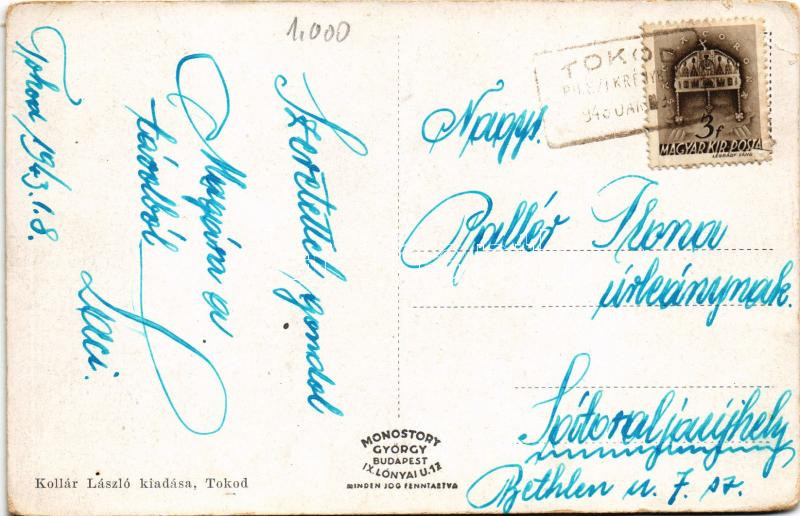 1.000
Tokod, 1943. I. 8.
Szeretettel gondol
Magára a
távolból
Laci.
Kollár László kiadása, Tokod
MONOSTORY
GYÖRGY
BUDAPEST
IX. LÓNYAI U. 12
MINDEN JOG FENNTARTVA
TOKOD
943 JAN
3f
MAGYAR KIR. POSTA
LÉGRÁDY SÁND.
Nagys.
Rallér Ilona
úrleánynak.
Sátoraljaújhely
Bethlen u. 7. sz.